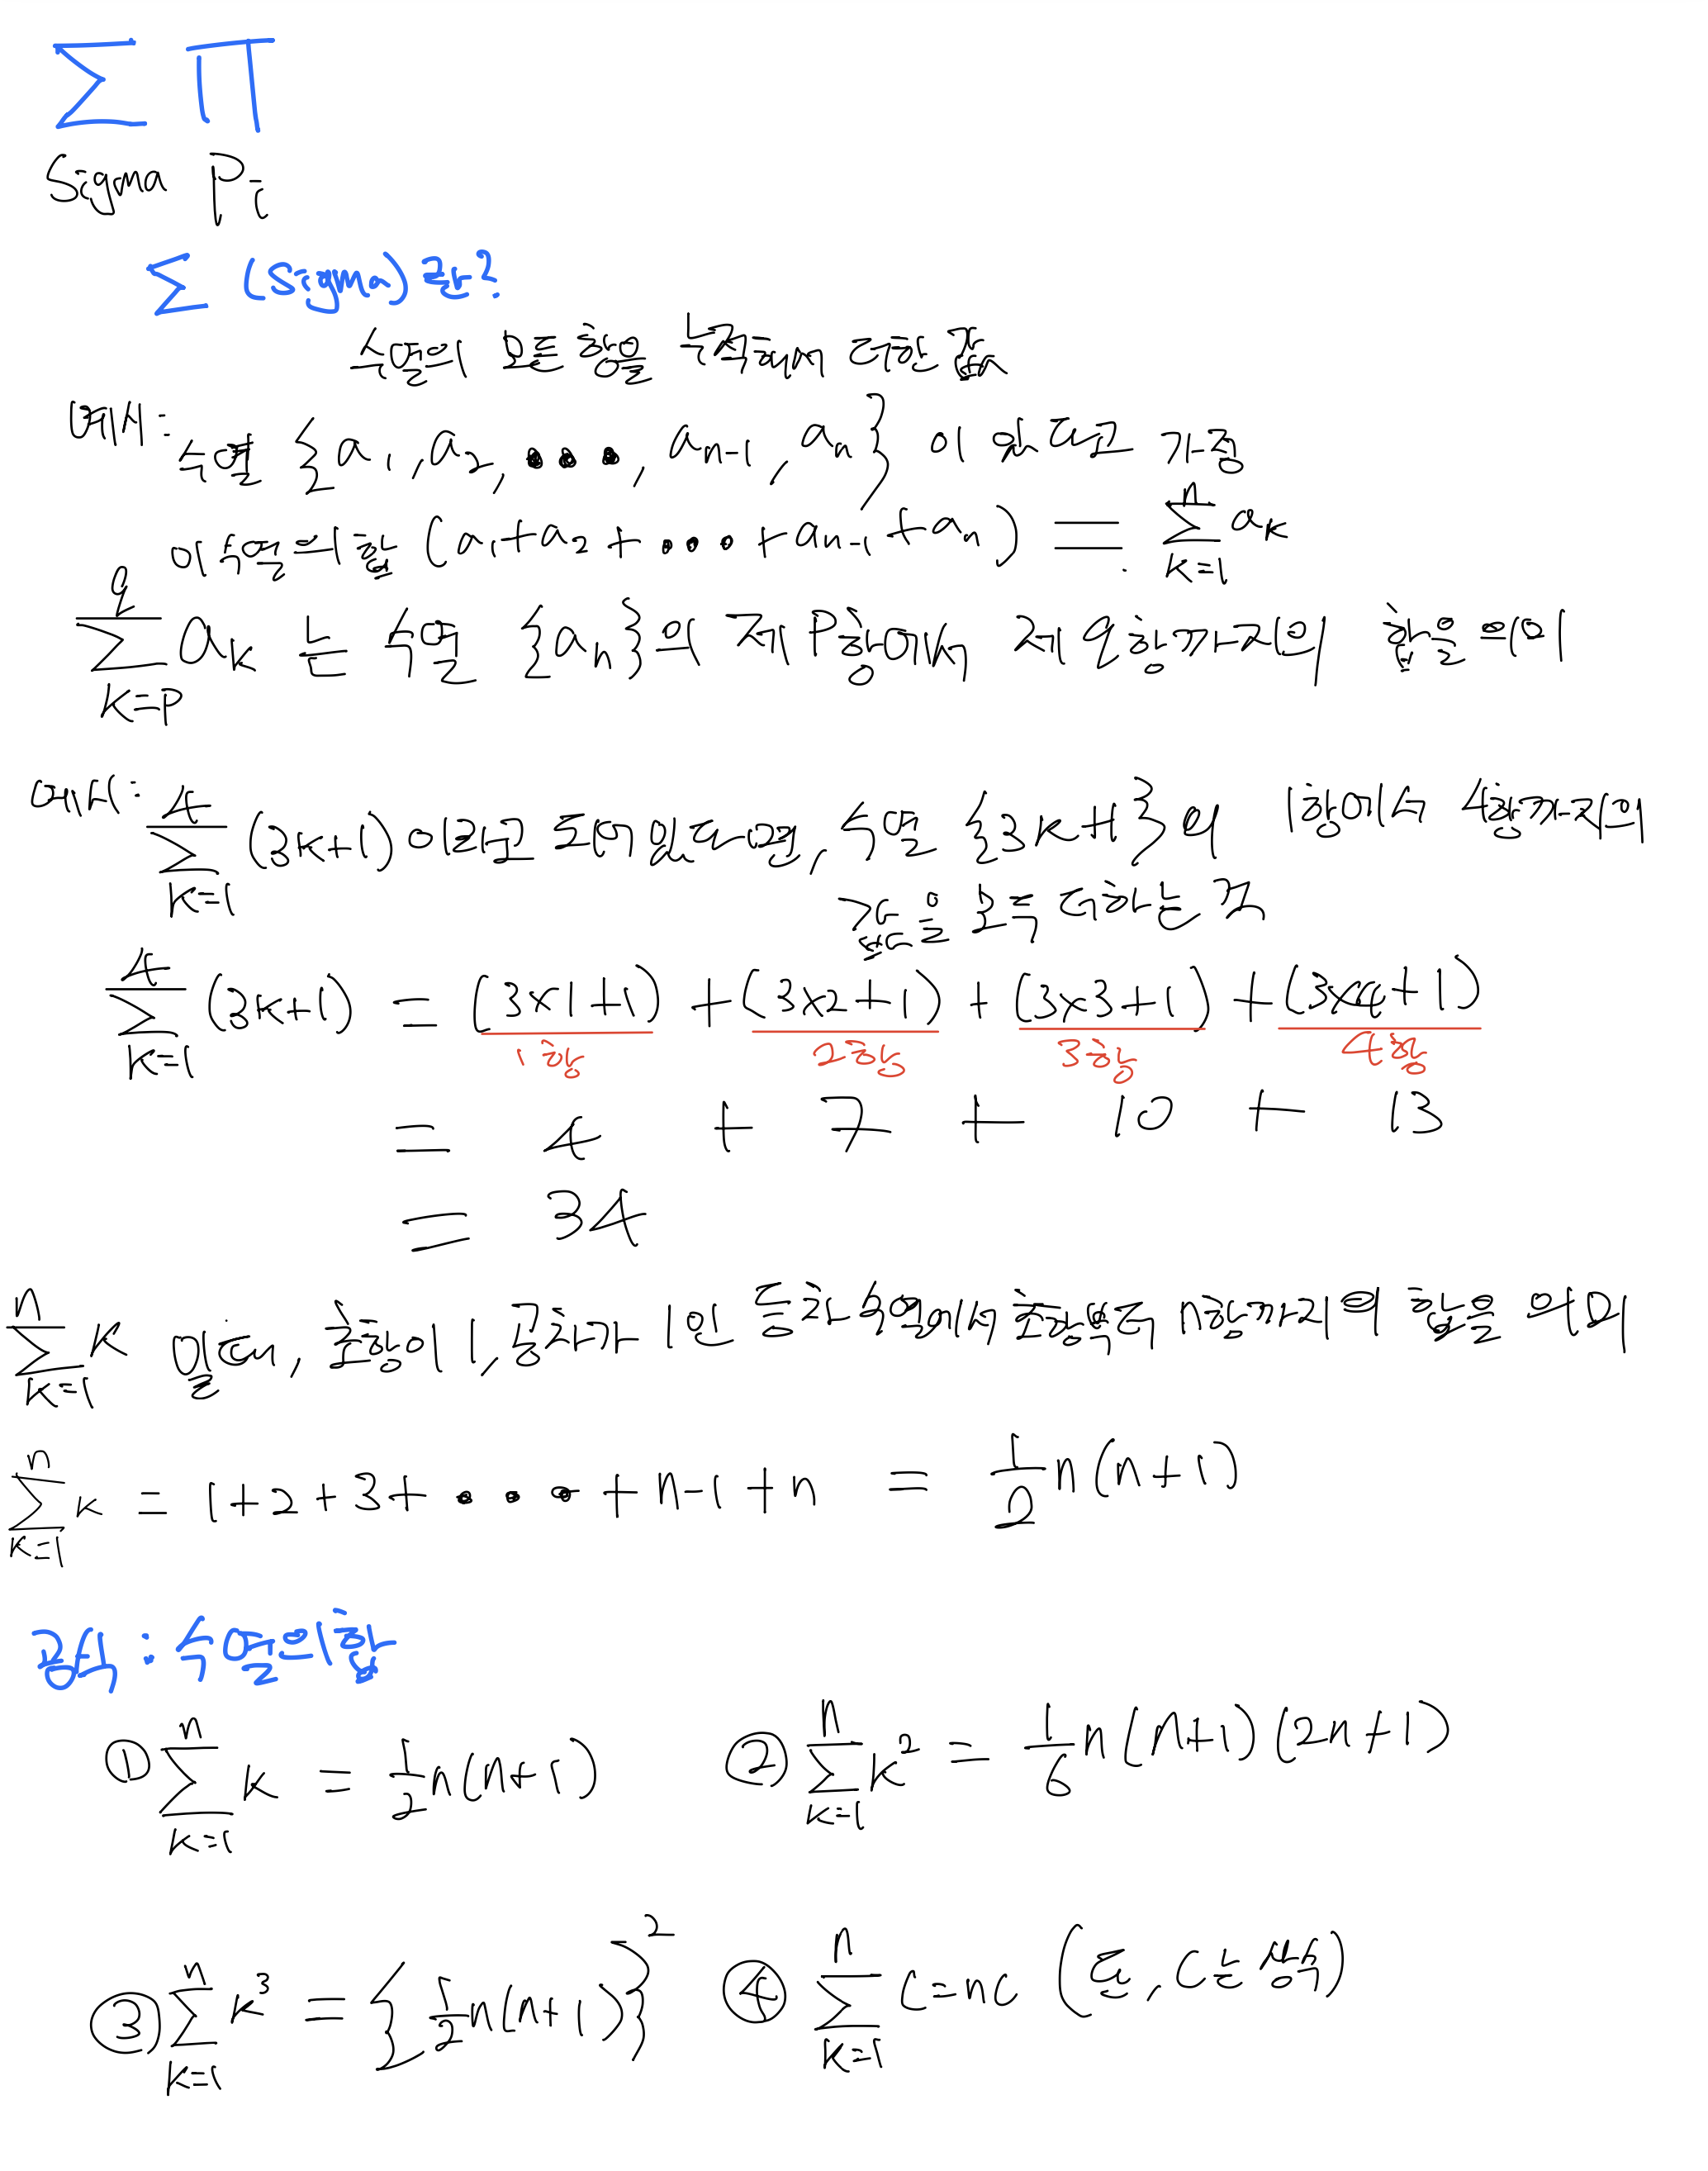 Σ Π
Sigma Pi
Σ (Sigma)란?
수열의 모든 항을 누적해서 더한 값
예시: 수열 {a₁, a₂, •••, aₙ₋₁, aₙ} 이 있다고 가정
이 수열의 합 (a₁+a₂+•••+aₙ₋₁+aₙ) = Σ_{k=1}^{n} a_k
Σ_{k=p}^{q} a_k 는 수열 {aₙ}의 제 p항에서 제 q항까지의 합을 의미
예시: Σ_{k=1}^{4} (3k+1) 이라고 되어있다면, 수열 {3k+1}의 1항에서 4항까지의
값을 모두 더하는 것
Σ_{k=1}^{4} (3k+1) = (3×1+1) + (3×2+1) + (3×3+1) + (3×4+1)
1항 2항 3항 4항
= 4 + 7 + 10 + 13
= 34
Σ_{k=1}^{n} k 일때, 초항이 1, 공차가 1인 등차수열에서 초항부터 n항까지의 합을 의미
Σ_{k=1}^{n} k = 1+2+3+•••+n-1+n = 1/2 n(n+1)
공식: 수열의 합
① Σ_{k=1}^{n} k = 1/2 n(n+1) ② Σ_{k=1}^{n} k² = 1/6 n(n+1)(2n+1)
③ Σ_{k=1}^{n} k³ = {1/2 n(n+1)}² ④ Σ_{k=1}^{n} c = nc (단, c는 상수)